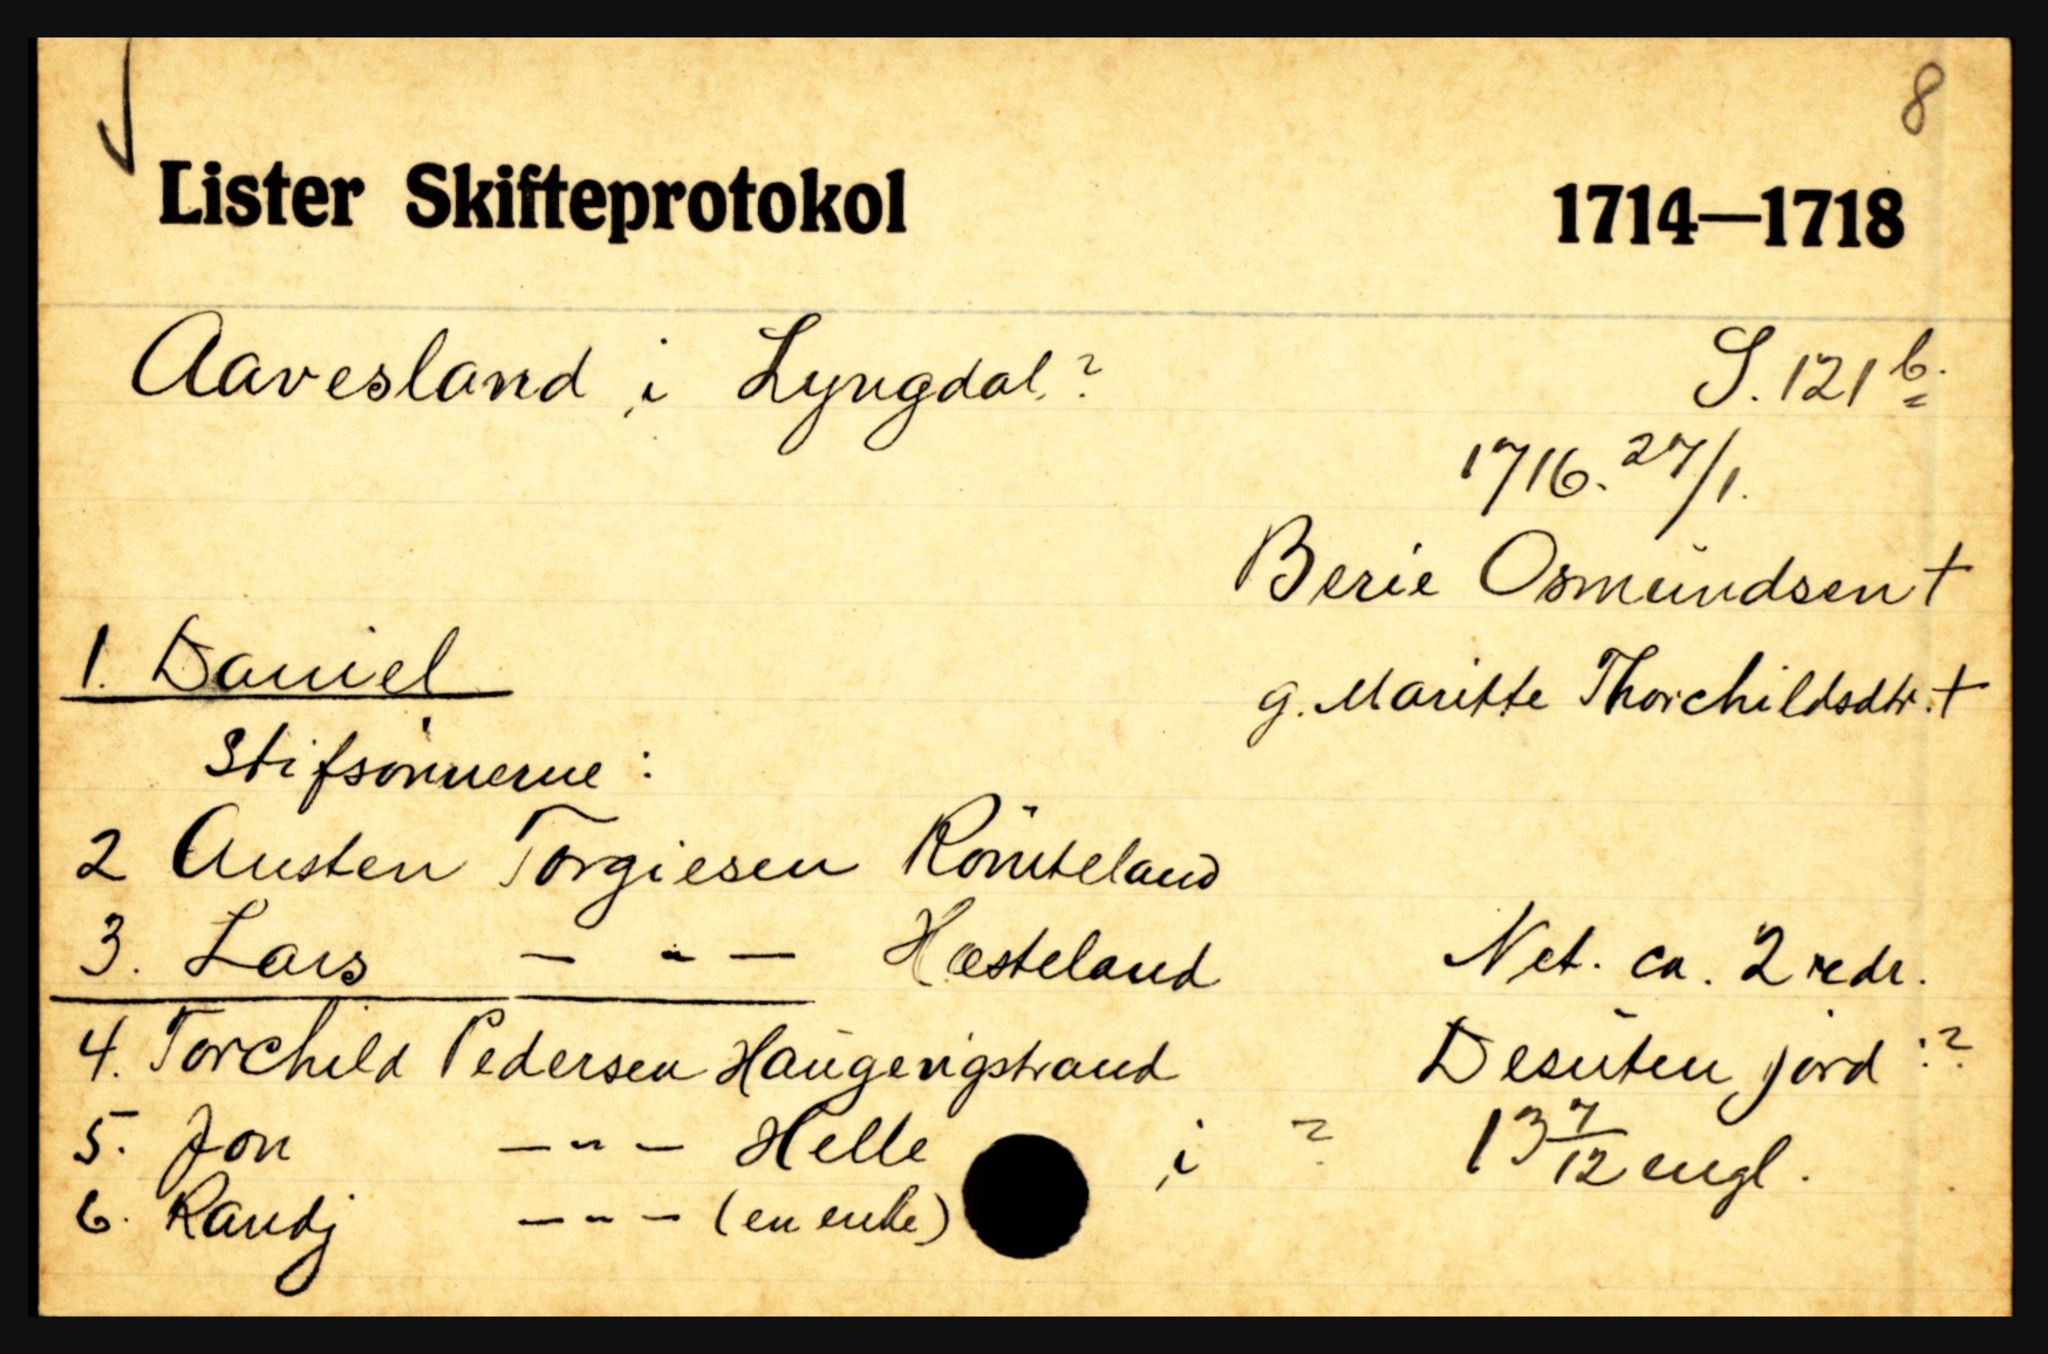 8
Lister Skifteprotokol 1714—1718
Aavesland i Lyngdal? S. 121 b.
1716. 27/1.
Berie Osmundsen +
1. Daniel g. Maritte Thorchildsdtr. +
Stifsønnerne:
2 Austen Torgiesen Römteland
3. Lars — " — Hæsteland Net. ca. 2 redr.
4. Torchild Pedersen Haugenigstrand Desuten jord: ?
5. Jon — " — Helle i ? 13 7/12 engl.
6. Randj — " — (en enke)